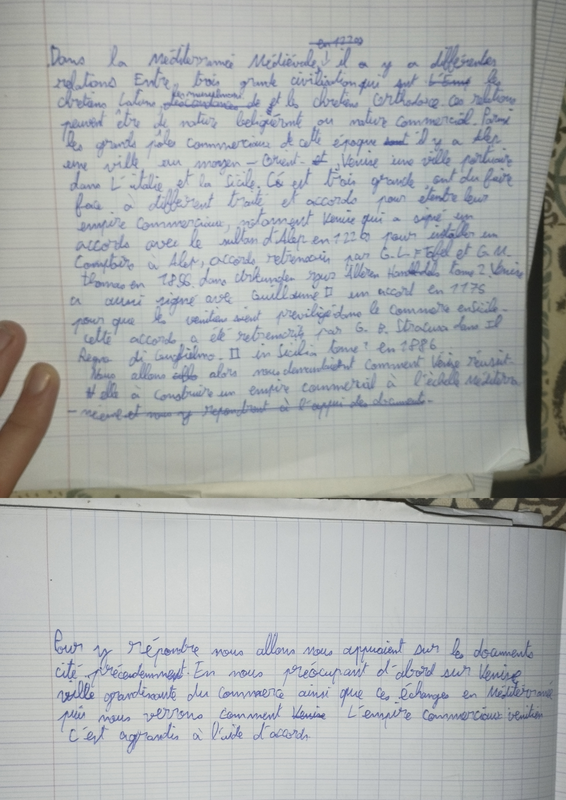 en 1220
Dans la Méditerranée Médiévale, il a y a différentes
relations Entre trois grante civilisation qui sont les
les musulmans
chretiens Latins, et les chretiens Orthodoxe. Ces relations
peuvent être de nature beligérante ou nature commercial. Parmi
les grands pôles commerciaux de cette époque il y a Alep
une ville au moyen-Orient et Venise une ville portuaire
dans L'italie et la Sicile. Cé est trois grande ont du faire
face à différent traité et accords pour étentre leur
empire commerciaux, notament Venise qui a signé un
accords avec le sultan d'Alep en 1220 pour installer un
Comptoirs à Alep, accords retranscris par G.L.F Tafel et G.M.
thomas en 1856, dans Urkunden zur Altern Handels tome 2. Venise
a aussi signé avec Guillaume II un accord en 1175
pour que les venitiens soient previligié dans le commerce en Sicile.
cette accords a été retranscrits par G. B. Siragusa dans Il
Regno di Guglielmo II in Sicilia tome 1 en 1886
Nous allons alors nous demandaient Comment Venise reussit
elle à construire un empire commercial à l'échelle Méditerra
-néenne et nous y repondront à l'appui des documents.
Pour y répondre nous allons nous appuaient sur les documents
cité précedemment. En nous préocupant d'abord sur Venise
ville grandissante du commerce ainsi que ces échanges en Méditerranée
puis nous verrons comment Venise L'empire commerciaux venitien
c'est aggrandis à l'aide d'accords.